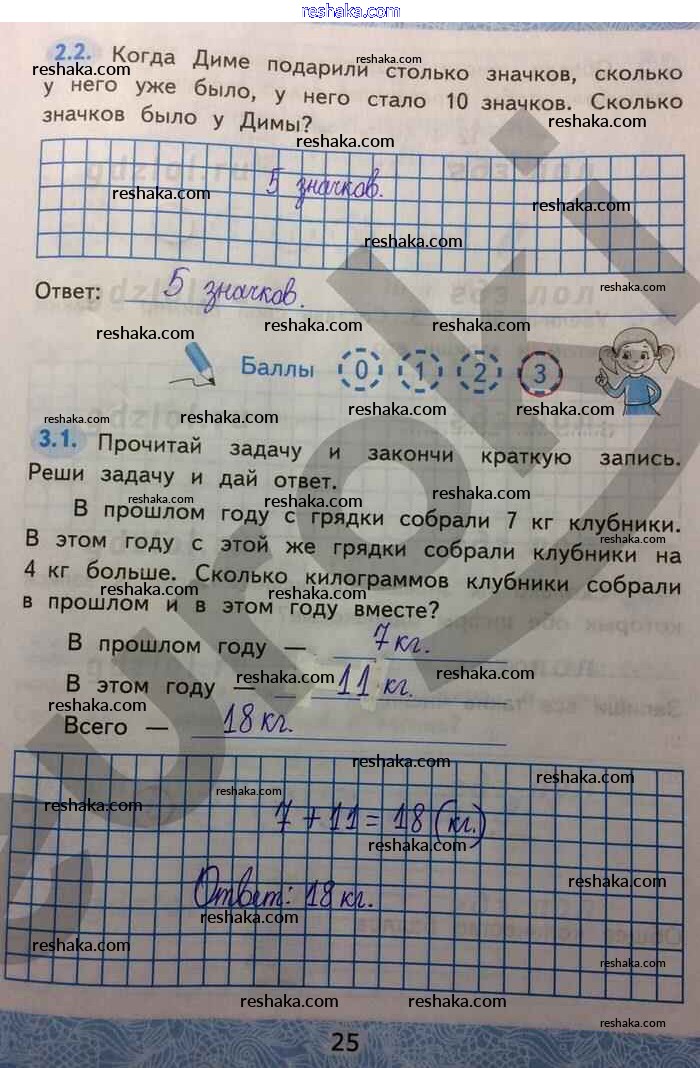 reshaka.com
2.2. Когда Диме подарили столько значков, сколько
у него уже было, у него стало 10 значков. Сколько
значков было у Димы?
5 значков.
Ответ: 5 значков.
Баллы 0 1 2 3
3.1. Прочитай задачу и закончи краткую запись.
Реши задачу и дай ответ.
В прошлом году с грядки собрали 7 кг клубники.
В этом году с этой же грядки собрали клубники на
4 кг больше. Сколько килограммов клубники собрали
в прошлом и в этом году вместе?
В прошлом году — 7 кг.
В этом году — 11 кг.
Всего — 18 кг.
7 + 11 = 18 (кг.)
Ответ: 18 кг.
25
euroki